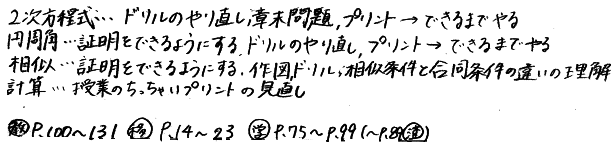 2次方程式… ドリルのやり直し,章末問題,プリント → できるまでやる
円周角…証明をできるようにする,ドリルのやり直し,プリント → できるまでやる
相似…証明をできるようにする.作図,ドリル,相似条件と合同条件の違いの理解
計算…授業のちっちゃいプリントの見直し
P.100~131 P.14~23 P.75~P.99(~P.89